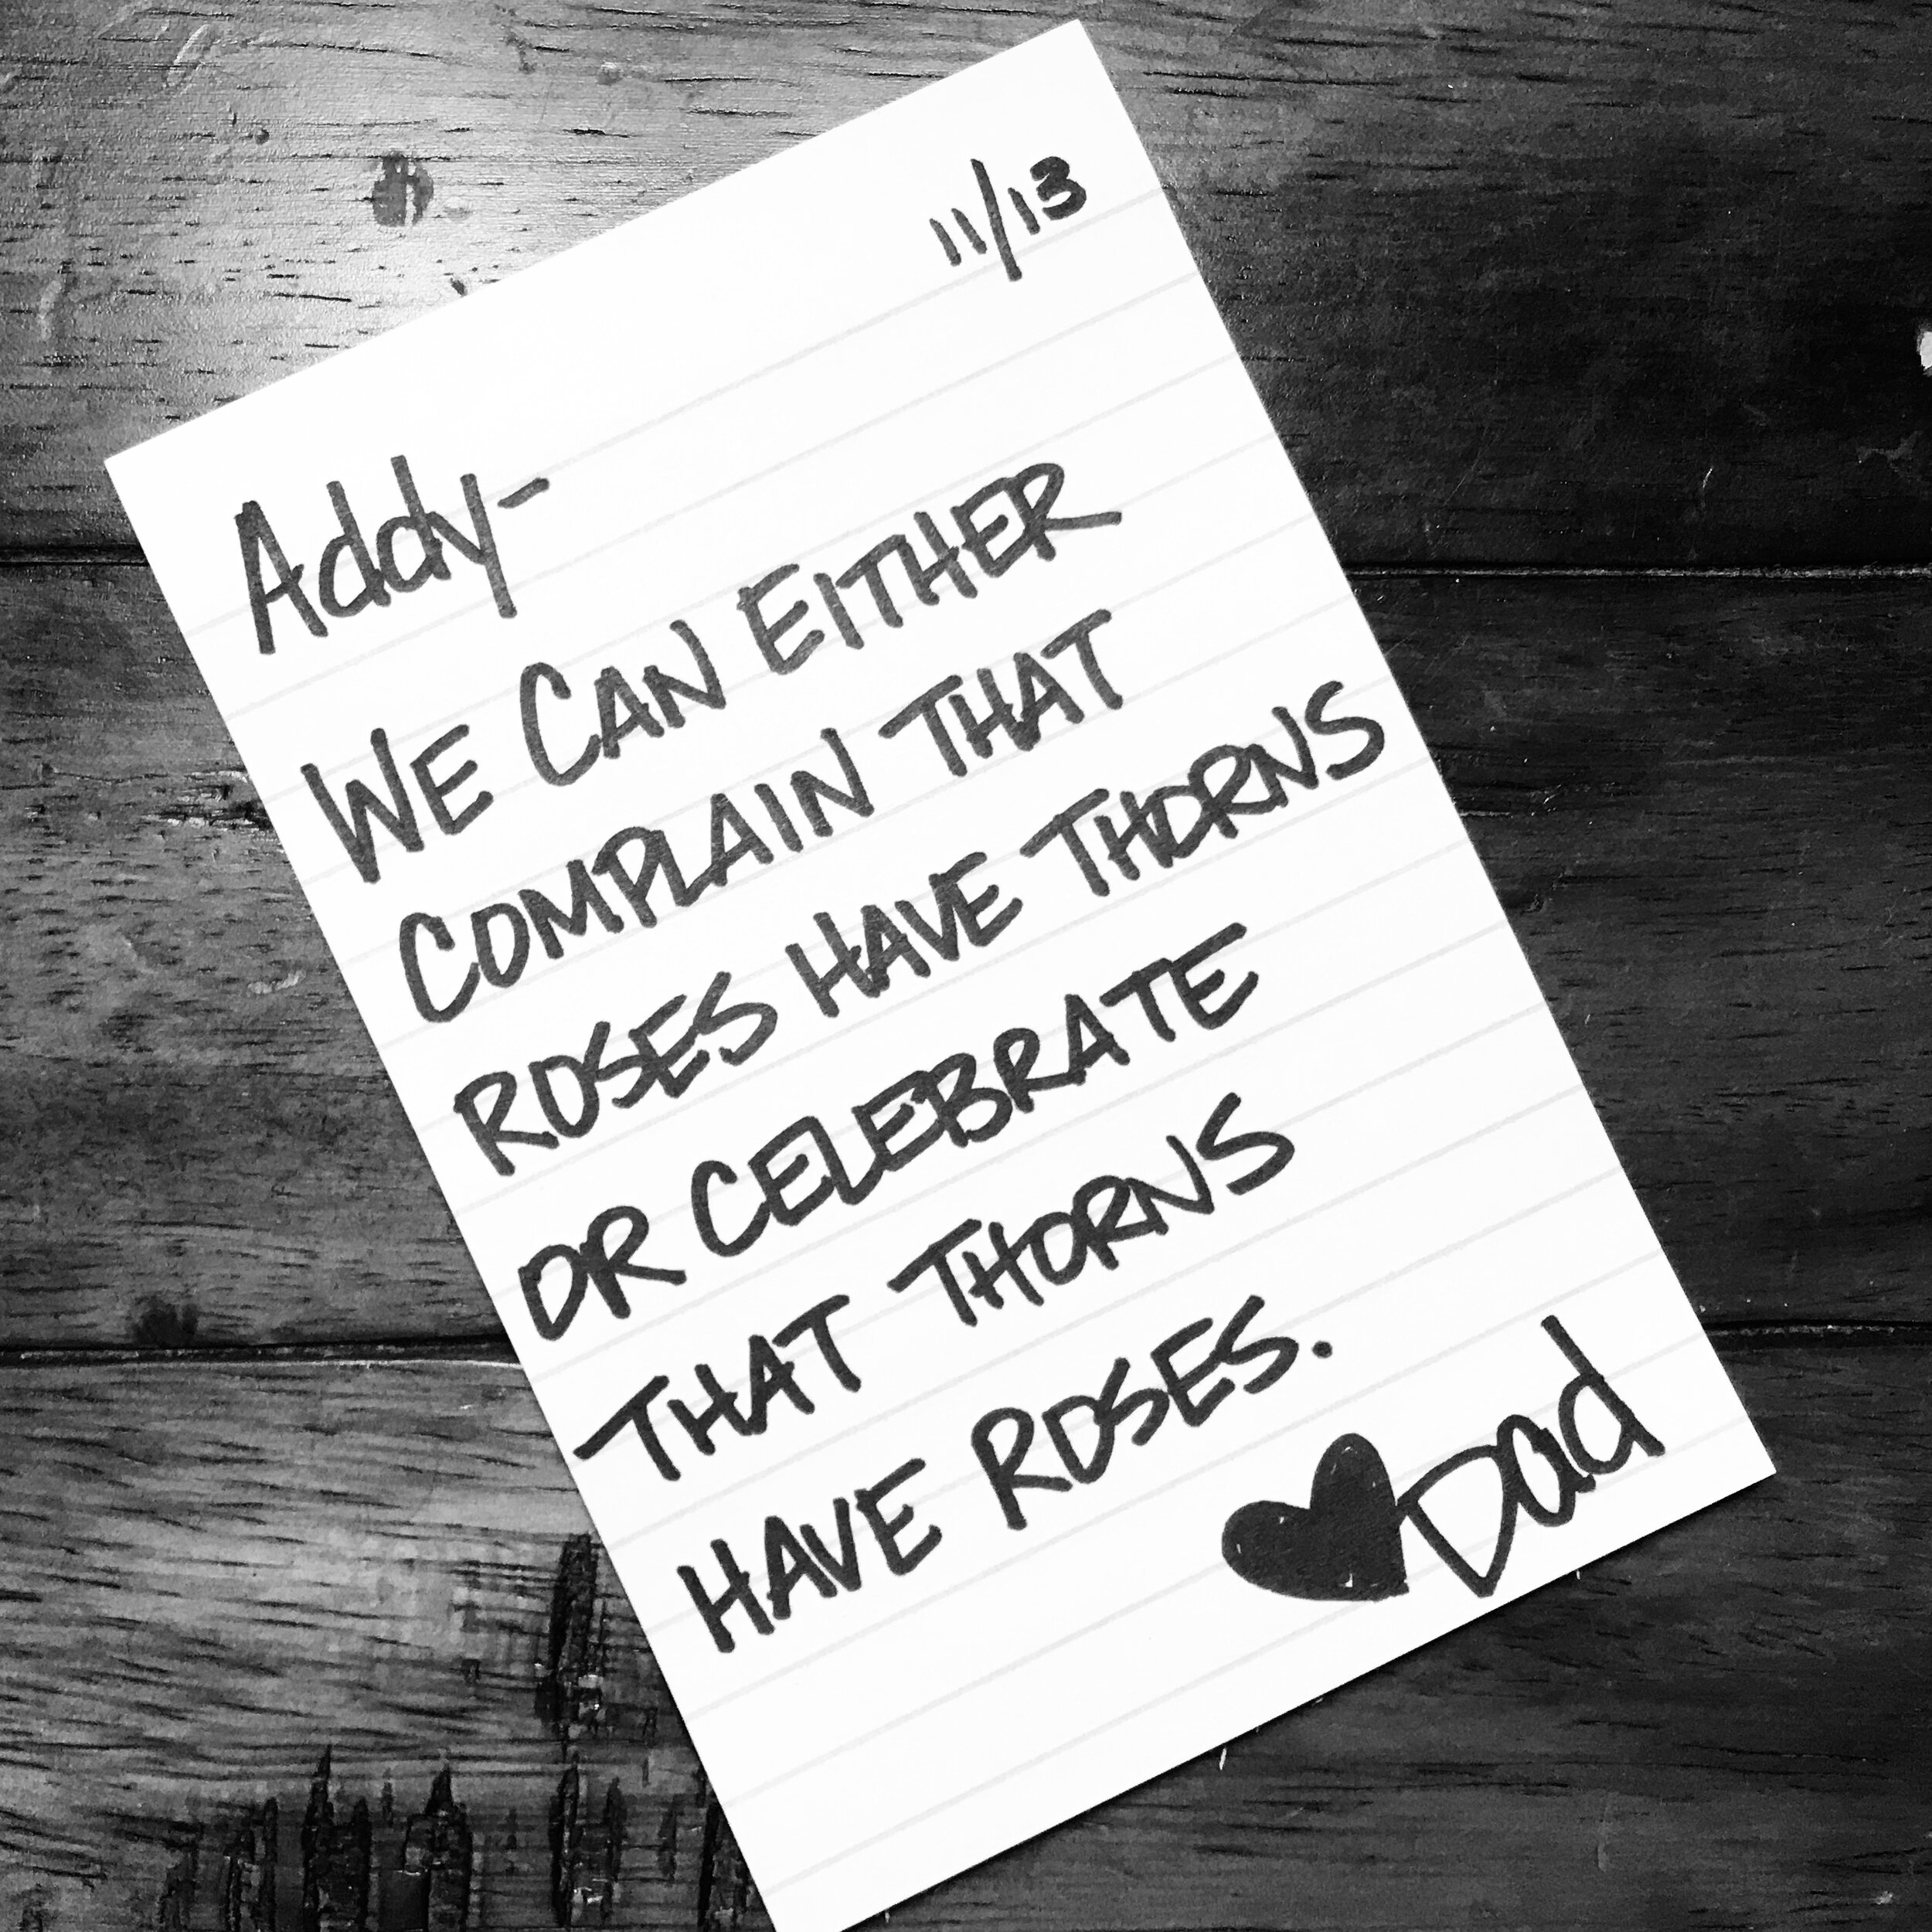 11/13
Addy-
WE CAN EITHER
COMPLAIN THAT
ROSES HAVE THORNS
OR CELEBRATE
THAT THORNS
HAVE ROSES.
♥Dad